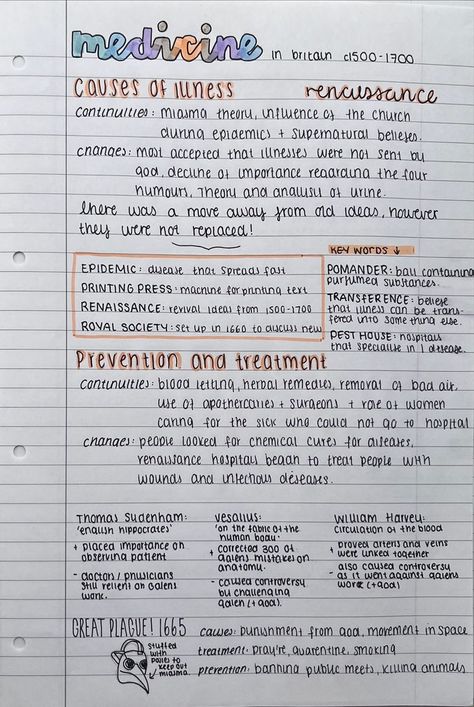 medicine in britain c1500-1700
causes of illness renaissance
continuities: miasma theory, influence of the church
during epidemics + supernatural believes.
changes: most accepted that illnesses were not sent by
god, decline of importance regarding the four
humours, theory and analysis of urine.
there was a move away from old ideas, however
they were not replaced!
EPIDEMIC: disease that spreads fast
PRINTING PRESS: machine for printing text
RENAISSANCE: revival ideas from 1500-1700
ROYAL SOCIETY: set up in 1660 to discuss new
KEY WORDS ↓
POMANDER: ball containing
purfumed substances.
TRANSFERENCE: believe
that illness can be trans-
fered into something else.
PEST HOUSE: hospitals
that specialise in 1 disease.
Prevention and treatment
continuities: blood letting, herbal remedies, removal of bad air,
use of apothercaries + surgeons + role of women
caring for the sick who could not go to hospital
changes: people looked for chemical cures for diseases,
renaissance hospitals began to treat people with
wounds and infectious diseases.
Thomas Sydenham:
'english hippocrates'
+ placed importance on
observing patient
- doctors / physicians
still relient on Galens
work.
Vesalius:
'on the fabric of the
human body'
+ corrected 300 of
galens mistakes on
anatomy.
- caused controversy
by challenging
galen (+ god).
William Harvey:
circulation of the blood
+ proved arteris and veins
were linked together
- also caused controversy
as it went against galens
work (+god)
GREAT PLAGUE! 1665
stuffed
with
posies to
keep out
miasma
causes: punishment from god, movement in space
treatment: prayre, quarentine, smoking
prevention: banning public meets, killing animals